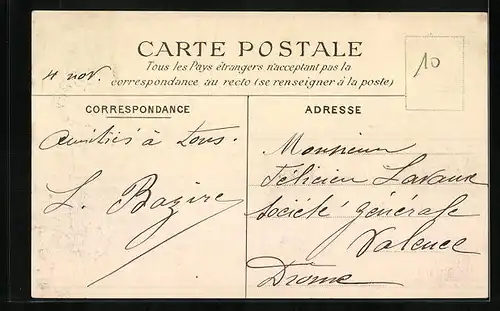 CARTE POSTALE
Tous les Pays étrangers n'acceptant pas la
correspondance au recto (se renseigner à la poste)
4 nov.
10
CORRESPONDANCE
Amitiés à tous.
L. Bazire
ADRESSE
Monsieur
Félicien Lavaux
Société générale
Valence
Drome